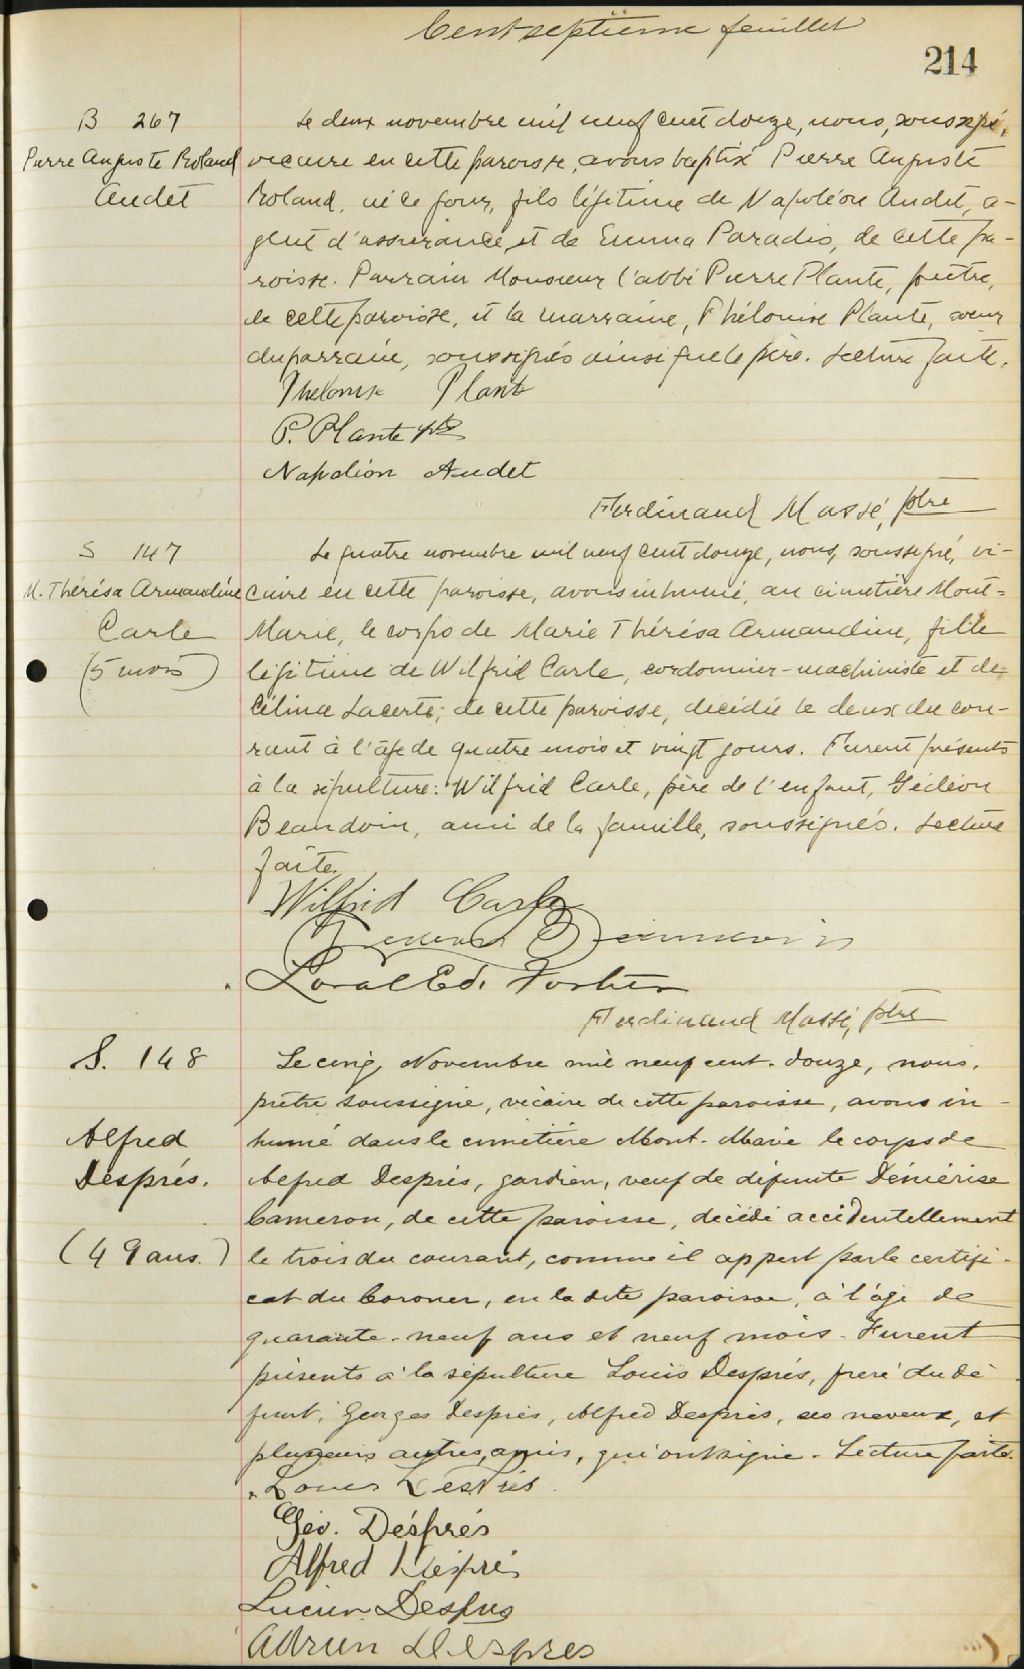 Cent septième feuillet
214
B 267
Pierre Auguste Roland
Audet
Le deux novembre mil neuf cent douze, nous, soussigné,
vicaire en cette paroisse, avons baptisé Pierre Auguste
Roland, né ce jour, fils légitime de Napoléon Audet, a-
gent d'assurance, et de Emma Paradis, de cette pa-
roisse. Parrain Monsieur l'abbé Pierre Plante, prêtre,
de cette paroisse, et la marraine, Phélonise Plante, soeur
du parrain, soussignés ainsi que le père. Lecture faite.
Phelonise Plante
P. Plante ptre
Napoléon Audet
Ferdinand Massé, ptre
S 147
M. Thérésa Armandine
Carle
(5 mois)
Le quatre novembre mil neuf cent douze, nous, soussigné, vi-
caire en cette paroisse, avons inhumé, au cimetière Mont-
Marie, le corps de Marie Thérésa Armandine, fille
légitime de Wilfrid Carle, cordonnier-machiniste et de
Célina Lacerte, de cette paroisse, décédée le deux du cou-
rant à l'âge de quatre mois et vingt jours. Furent présents
à la sépulture: Wilfrid Carle, père de l'enfant, Gédéon
Beaudoin, ami de la famille, soussignés. Lecture
faite.
Wilfrid Carle
Ferdinand Massé, ptre
S. 148
Alfred
Després.
(49 ans.)
Le cinq Novembre mil neuf cent douze, nous,
prêtre soussigné, vicaire de cette paroisse, avons in-
humé dans le cimetière Mont-Marie le corps de
Alfred Després, gardien, veuf de défunte Démérise
Cameron, de cette paroisse, décédé accidentellement
le trois du courant, comme il appert par le certifi-
cat du Coroner, en la dite paroisse, à l'âge de
quarante-neuf ans et neuf mois. Furent
présents à la sépulture Louis Després, frère du dé-
funt, Georges Després, Alfred Després, ses neveux, et
plusieurs autres, amis, qui ont signé. Lecture faite.
Louis Després
Géo. Désprés
Alfred Després
Lucien Després
Adrien Despres